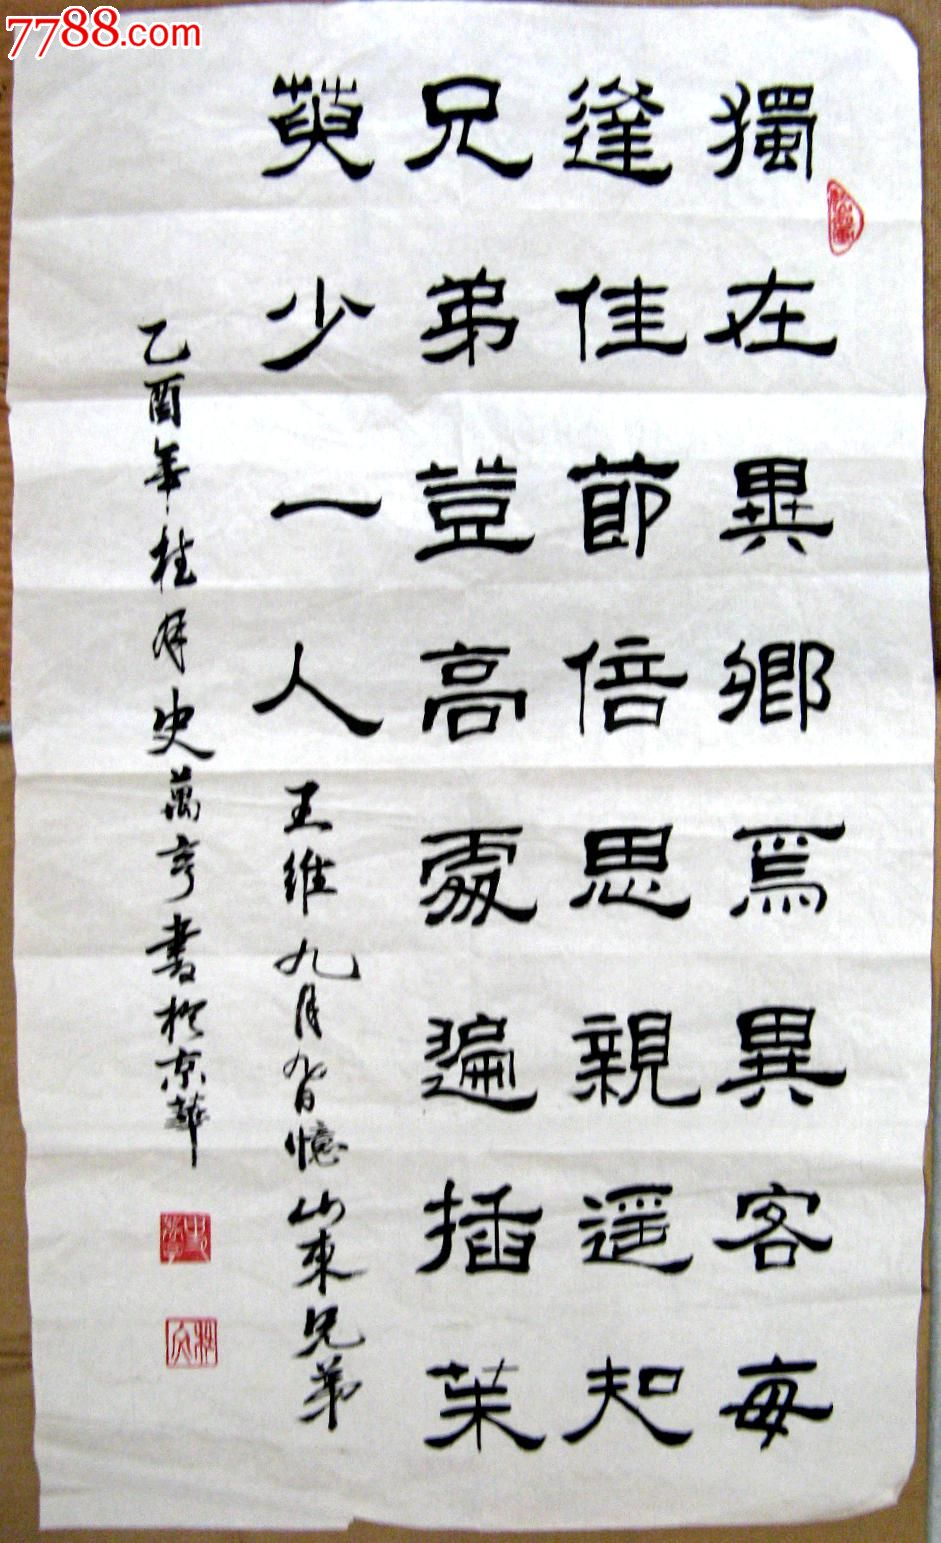 7788.com
獨在異鄉為異客每
逢佳節倍思親遥知
兄弟豈高處遍插茱
萸少一人 王維九月九日憶山東兄弟
乙酉年桂月史萬亨書於京華